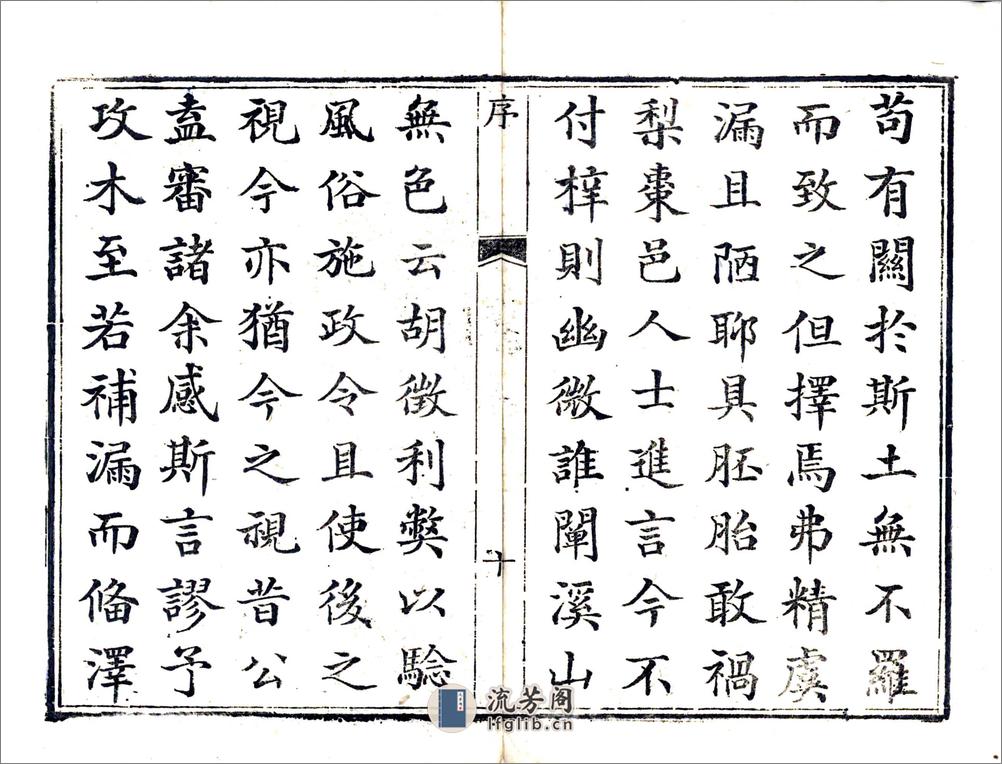 苟有關於斯土無不羅
而致之但擇焉弗精虞
漏且陋耶具胚胎敢禍
梨棗邑人士進言今不
付梓則幽微誰闡溪山
序
十
無色云胡徵利獘以騐
風俗施政令且使後之
視今亦猶今之視昔公
盍審諸余感斯言謬予
攻木至若補漏而俻澤
流芳阁
lfglib.cn